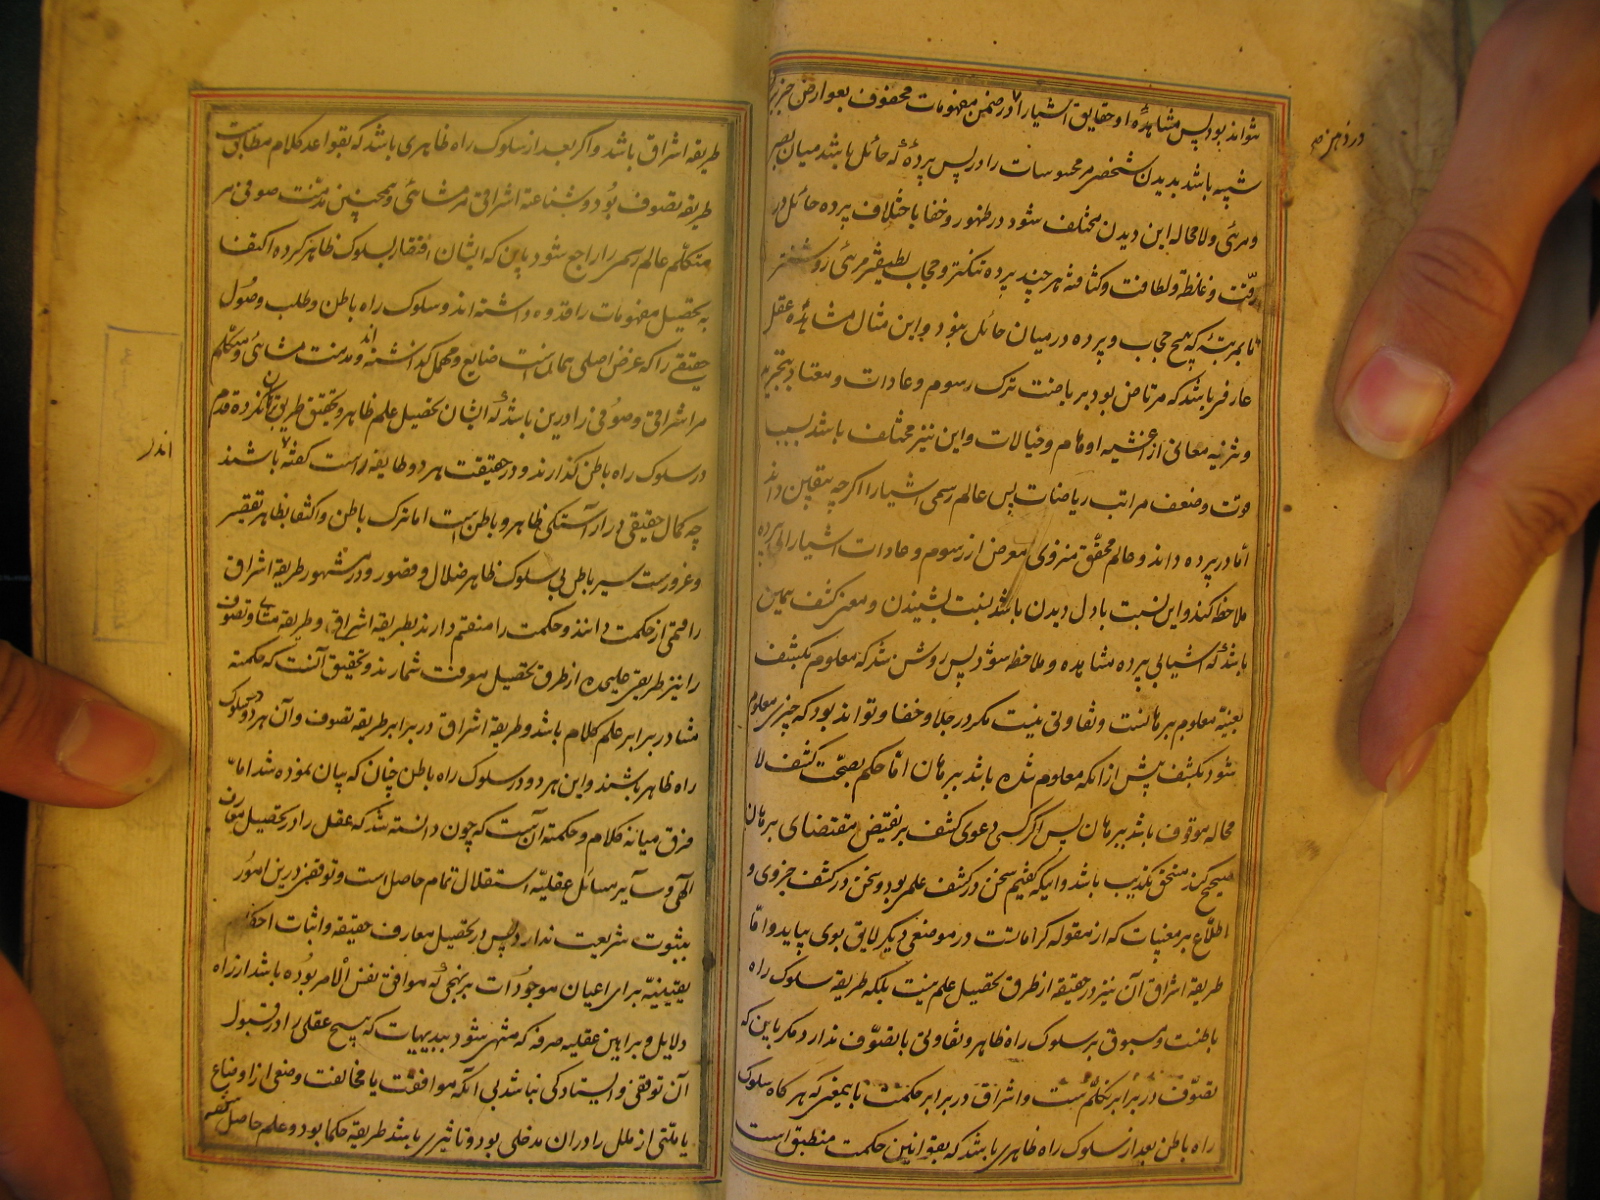 نتواند بود پس مشاهدهٔ او حقایق اشیا را در ضمن مفهومات محفوف بعوارض جزئیه
شبیه باشد بدیدن شخصی مر محسوسات را در پس پردهٔ که حائل باشد میان بصر
و مرئی و لا محاله این دیدن مختلف شود در ظهور و خفا باختلاف پرده حائل در
رقّت و غلظت و لطافت و کثافت هر چند پرده تنکتر و حجاب لطیفتر مرئی روشنتر
تا بمرتبهٔ که هیچ حجاب و پرده در میان حائل نبود و این مثال مشاهدهٔ عقل
عارفی باشد که مرتاض بود بریاضت ترک رسوم و عادات و معتاد بتجرید
و تنزیه معانی از اغشیه اوهام و خیالات و این نیز مختلف باشد بسبب
قوت و ضعف مراتب ریاضات پس عالم رسمی اشیا را اگرچه بیقین داند
امّا در پرده داند و عالم محقّق منزوی معرض از رسوم و عادات اشیا را بی پرده
ملاحظه کند و این نسبت بادل دیدن باشد نسبت بشنیدن و معنی کشف همین
باشد که اشیا بی پرده مشاهده و ملاحظه شود پس روشن شد که معلوم بکشف
بعینه معلوم ببرهانست و تفاوتی نیست مکر در جلا و خفا و تواند بود که چیزی معلوم
شود بکشف پیش از آنکه معلوم شده باشد ببرهان امّا حکم بصحّت کشف لا
محاله موقوف باشد ببرهان پس اگر کسی دعوی کشف بر نقیض مقتضای برهان
صحیح کند مستحق تکذیب باشد و اینکه کفتیم سخن در کشف علمی بود و سخن در کشف جزوی و
اطلاع بر مغیبات که از مقوله کراماتست در موضعی دیگر لایق بوی بیاید و امّا
طریقه اشراق آن نیز در حقیقه از طرق تحصیل علم نیست بلکه طریقه سلوک راه
باطنست و مسبوق بر سلوک راه ظاهر و تفاوتی با تصوّف ندارد مکر باین که
تصوّف در برابر تکلّم ست و اشراق در برابر حکمت باین معنی که هر گاه سلوک
راه باطن بعد از سلوک راه ظاهری باشد که بقوانین حکمت منطبق است
در ذهن
طریقه اشراق باشد و اگر بعد از سلوک راه ظاهری باشد که بقواعد کلام مطابق است
طریقه تصوف بود و شناعت اشراقی مر مشائی و همچنین مذمّت صوفی مر
متکلّم عالم رسمی را راجع شود باین که ایشان افتقار بسلوک ظاهر کرده اکتفا
به تحصیل مفهومات را قدوه داشته اند و سلوک راه باطن و طلب وصول
حقیقی را که غرض اصلی همانست ضایع و مهمل گذاشته اند و مذمت مشائی و متکلّم
مر اشراقی و صوفی را در این باشد که ایشان تحصیل علم ظاهر و تحقیق طریق نکرده قدم
در سلوک راه باطن گذارند و در حقیقت هر دو طایفه راست کفته باشند
چه کمال حقیقی در آراستگی ظاهر و باطن است اما ترک باطن و اکتفا بظاهر تقصیر
و غرورست سیر باطن بی سلوک ظاهر ضلال و قصور و در مشهور طریقه اشراق
را قسمی از حکمت دانند و حکمت را منقسم دارند بطریقه اشراق و طریقه مشاء و تصوف
را نیز طریقی علیحده از طرق تحصیل معرفت شمارند و تحقیق آنست که حکمت
مشا در برابر علم کلام باشد و طریقه اشراق در برابر طریقه تصوف و آن هر دو در سلوک
راه ظاهر باشند و این هر دو در سلوک راه باطن چنان که بیان نموده شد امّا
فرق میانه کلام و حکمت آن ست که چون دانسته شد که عقل را در تحصیل معارف
الهی و سایر مسائل عقلیّه استقلال تمام حاصل است و توقفی درین امور
بثبوت شریعت ندارد پس در تحصیل معارف حقیقه و اثبات احکام
یقینیّه برای اعیان موجودات بر نهجی که موافق نفس الامر بوده باشد از راه
دلایل و براهین عقلیه صرفه که منتهی شود ببدیهیات که هیچ عقلی را در قبول
آن توقفی و ایستادکی نباشد بی آنکه موافقت یا مخالفت وضعی از اوضاع
یا ملّتی از ملل را در آن مدخلی بود و تاثیری باشد طریقه حکما بود و علم حاصل
اندر